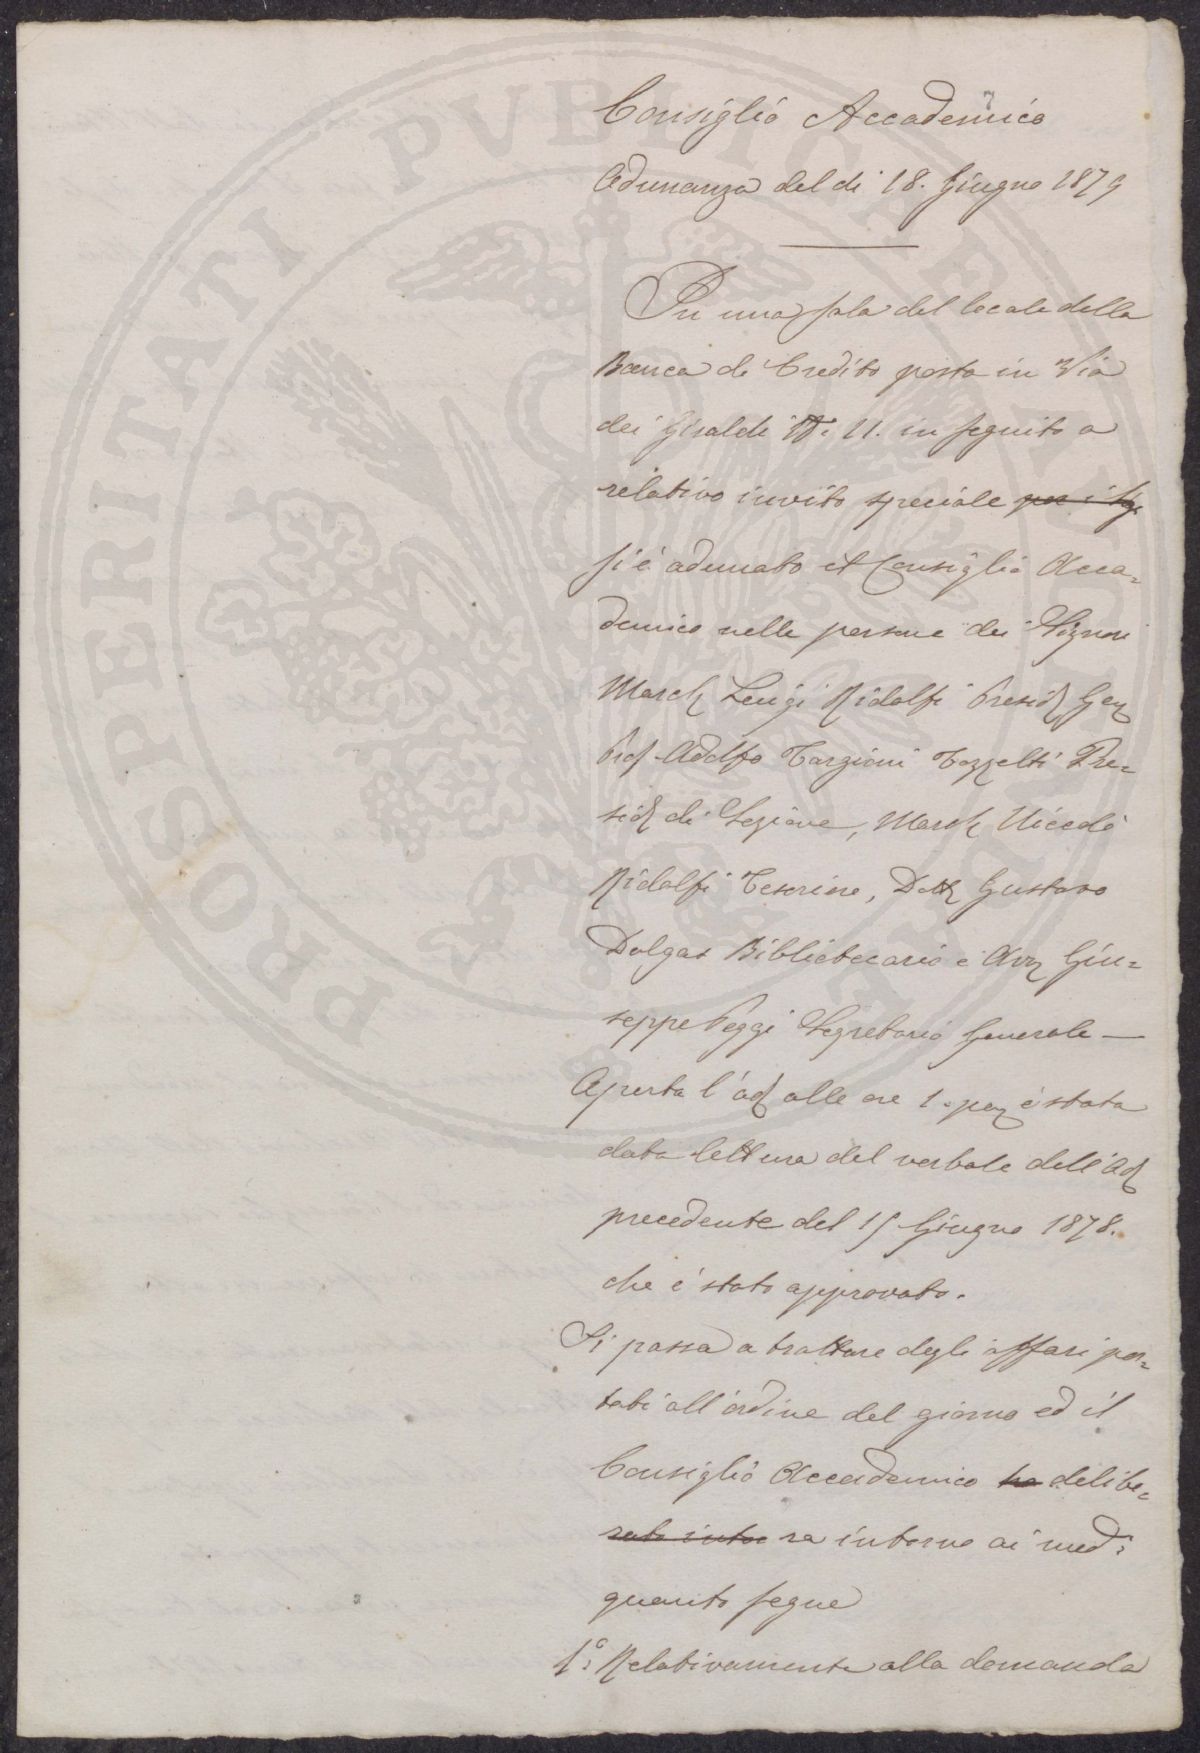 Consiglio Accademico
Adunanza del di 18. Giugno 1879
In una sala del locale della
Banca di Credito posta in Via
dei Giraldi N. 11. in seguito a
relativo invito speciale per i Sig.
si è adunato il Consiglio Acca=
demico nelle persone dei Signori
March Luigi Ridolfi Presid Gen
Prof Adolfo Targioni Tozzetti Pre=
sid di Sezione, March Niccolò
Ridolfi Tesoriere, Dott Gustavo
Dalgas Bibliotecario e Avv Giu=
seppe Peggi Segretario Generale —
Aperta l'ad alle ore 1. pom è stata
data lettura del verbale dell'Ad
precedente del 15 Giugno 1878.
che è stato approvato.
Si passa a trattare degli affari por=
tati all'ordine del giorno ed il
Consiglio Accademico ha delibe=
rato intor ra intorno ai med:
quanto segue
1.° Relativamente alla domanda
PROSPERITATI PVBLICAE AVGENDAE